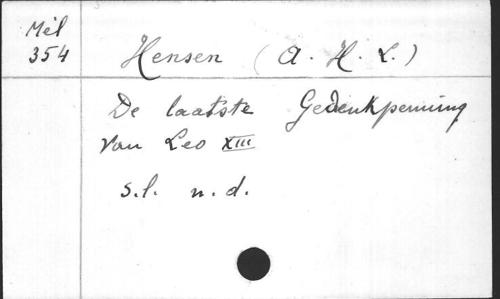 Mél
354
Hensen (A. H. L.)
De laatste Gedenkpenning
van Leo XIII
s.l. n.d.